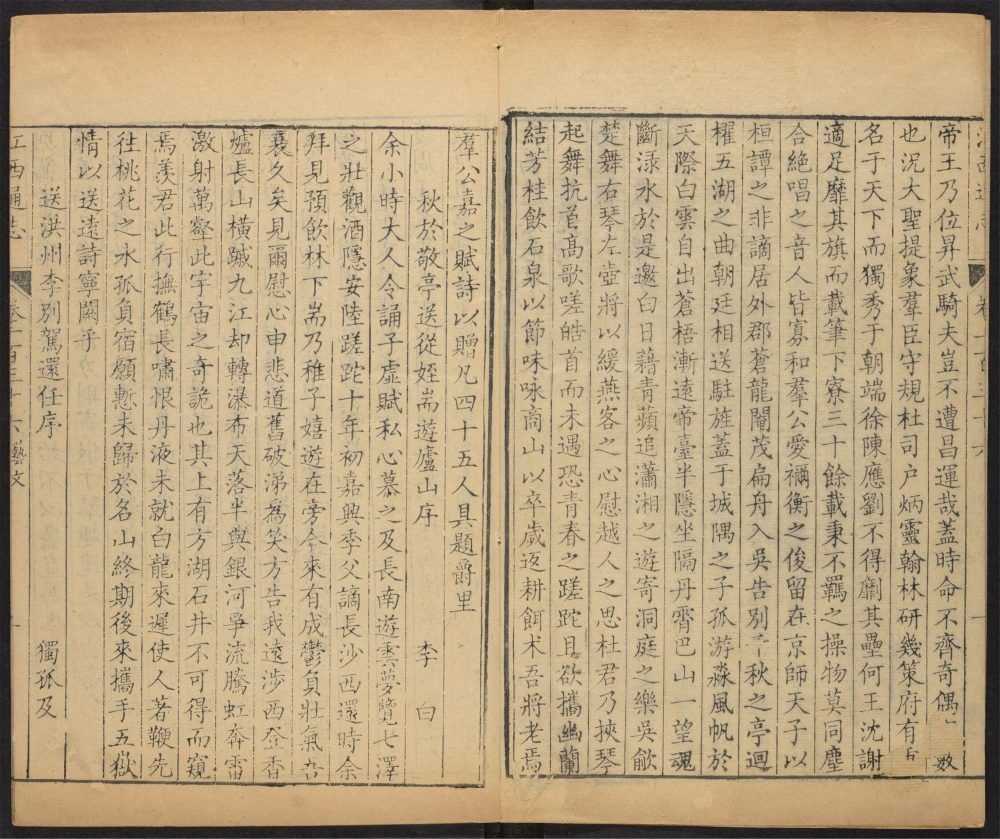 帝王乃位昇武騎夫豈不遭昌運哉蓋時命不齊奇偶 數
也況大聖提象羣臣守規杜司户炳靈翰林研幾策府有
名于天下而獨秀于朝端徐陳應劉不得劘其壘何王沈謝
適足靡其旗而載筆下寮三十餘載秉不羈之操物莫同塵
合絕唱之音人皆寡和羣公愛禰衡之俊留在京師天子以
桓譚之非謫居外郡蒼龍閹茂扁舟入吳告別 秋之亭迴
櫂五湖之曲朝廷相送駐旌蓋于城隅之子孤游淼風帆於
天際白雲自出蒼梧漸遠帝臺半隱坐隔丹霄巴山一望魂
斷淥水於是邀白日藉青蘋追瀟湘之遊寄洞庭之樂吳歈
楚舞右琴左壺將以緩燕客之心慰越人之思杜君乃挾琴
起舞抗首高歌嗟皓首而未遇恐青春之蹉跎且欲攜幽蘭
結芳桂飲石泉以節味咏商山以卒歲返耕餌术吾將老焉
羣公嘉之賦詩以贈凡四十五人具題爵里
秋於敬亭送從姪耑遊廬山序 李白
余小時大人令誦子虛賦私心慕之及長南遊雲夢覽七澤
之壯觀酒隱安陸蹉跎十年初嘉興季父謫長沙西還時余
拜見預飲林下耑乃稚子嬉遊在旁今來有成鬱負壯氣吾
衰久矣見爾慰心申悲道舊破涕爲笑方告我遠涉西登香
爐長山橫蹴九江却轉瀑布天落半與銀河爭流騰虹奔雷
激射萬壑此宇宙之奇詭也其上有方湖石井不可得而窺
焉羨君此行撫鶴長嘯恨丹液未就白龍來遲使人著鞭先
往桃花之水孤負宿願慙未歸於名山終期後來攜手五嶽
情以送遠詩寧闕乎
送洪州李別駕還任序 獨孤及
江西通志 卷一百三十六藝文 一